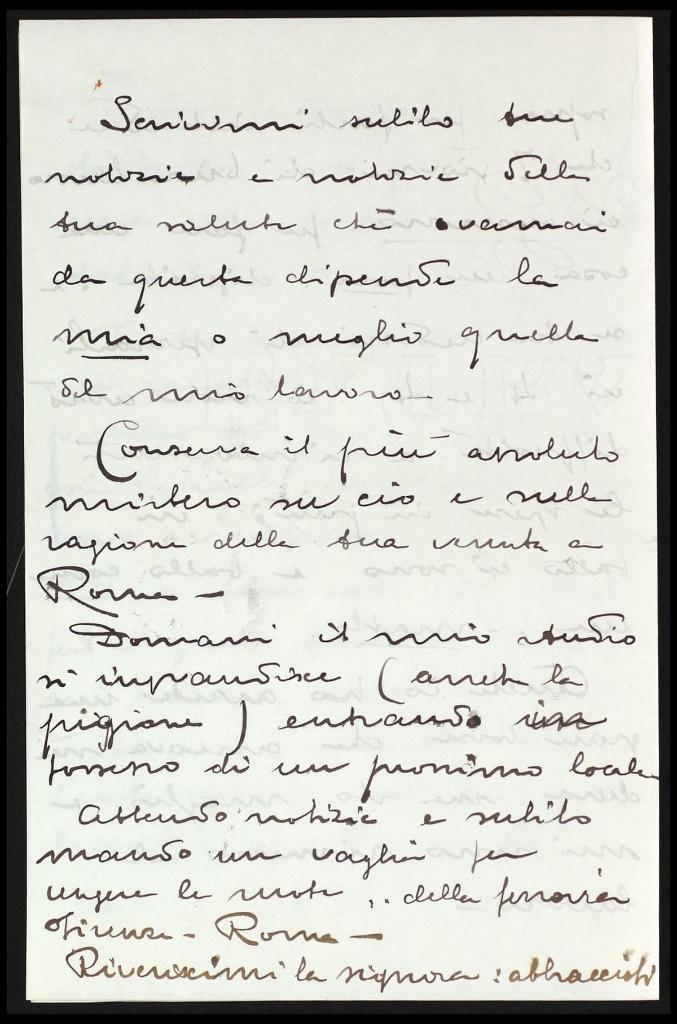 Scrivimi subito tue
notizie e notizie della
tua salute chè oramai
da questa dipende la
mia o meglio quella
del mio lavoro.
Conserva il più assoluto
mistero su ciò e sulla
ragione della tua venuta a
Roma –
Domani il mio studio
si ingrandisce (anche la
pigione) entrando in
possesso di un prossimo locale
Attendo notizie e subito
mando un vaglia per
ungere le ruote .. della ferrovia
Firenze - Roma –
Riveriscimi la signora : abbracciati